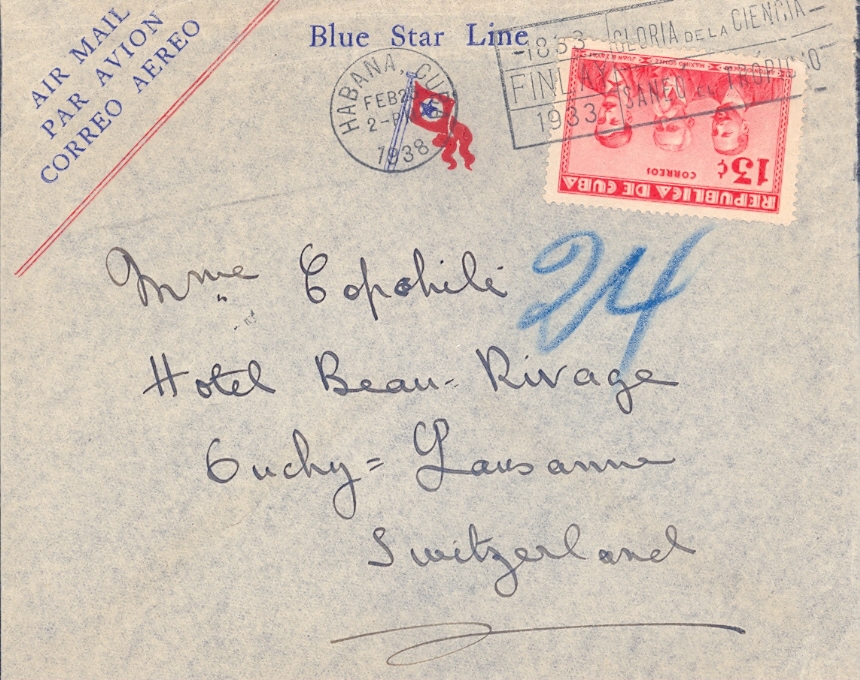 AIR MAIL
PAR AVION
CORREO AEREO
Blue Star Line
HABANA, CUBA
FEB
2-P
1938
1833 GLORIA DE LA CIENCIA
FINLAY SANEO EL TROPICO
1933
REPUBLICA DE CUBA
CORREOS
13¢
24
Mme
Hotel Beau-Rivage
Ouchy=Lausanne
Switzerland